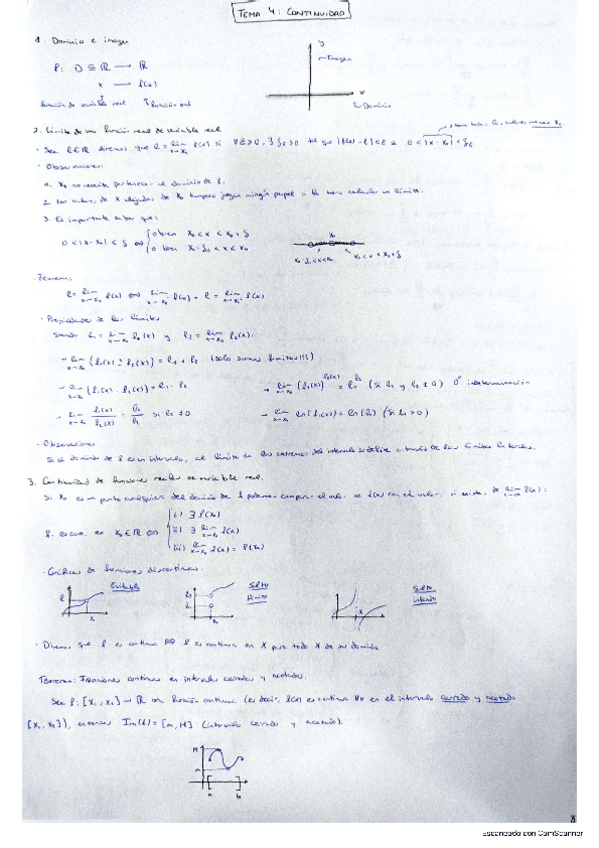 TEMA 4: CONTINUIDAD
1. Dominio e imagen
y
f: D ⊆ ℝ → ℝ
Imagen
x → f(x)
x
Dominio
función de variable real función real
2. Límite de una función real de variable real
· Sea l∈ℝ diremos que l = lim x→x₀ f(x) si ∀ε>0, ∃ δε>0 tal que |f(x) - l| < ε si 0<|x-x₀|<δε
· Observaciones:
1. x₀ no necesita pertenecer al dominio de f.
2. Los valores de x alejados de x₀ tampoco juegan ningún papel a la hora calcular un límite.
3. Es importante saber que:
0<|x-x₀|<δ ⇔ { o bien x₀<x<x₀+δ
o bien x₀-δ<x<x₀
x₀
x₀-δ<x<x₀ x₀<x<x₀+δ
· Teorema:
l = lim x→x₀ f(x) ⇔ lim x→x₀⁺ f(x) = l = lim x→x₀⁻ f(x)
· Propiedades de los límites
Siendo l₁ = lim x→x₀ f₁(x) y l₂ = lim x→x₀ f₂(x):
- lim x→x₀ (f₁(x) ± f₂(x)) = l₁ ± l₂
- lim x→x₀ (f₁(x) · f₂(x)) = l₁ · l₂ - lim x→x₀ (f₁(x))^f₂(x) = l₁^l₂ 0⁰ indeterminación
- lim x→x₀ f₁(x)/f₂(x) = l₁/l₂ si l₂ ≠ 0 - lim x→x₀ ln(f₁(x)) = ln(l₁) (si l₁>0)
· Observaciones
Si el dominio de f es un intervalo, el límite en los extremos del intervalo se define a través de los límites laterales.
3. Continuidad de funciones reales de variable real.
Si x₀ es un punto cualquiera del dominio de f podemos comparar el valor de f(x) con el valor, si existe, de lim x→x₀ f(x):
f es cont. en x₀∈ℝ ⇔ { i) ∃ f(x₀)
ii) ∃ lim x→x₀ f(x)
iii) lim x→x₀ f(x) = f(x₀)
· Gráficas de funciones discontinuas.
Evitable
Salto finito
Salto infinito
· Diremos que f es continua ⇔ f es continua en x para todo x de su dominio
Teorema: Funciones continuas en intervalos cerrados y acotados.
Sea f: [x₁, x₂] → ℝ una función continua (es decir, f(x) es continua ∀x en el intervalo cerrado y acotado
[x₁, x₂]), entonces Im(f) = [m, M] (intervalo cerrado y acotado).
M
m
a b
8
Escaneado con CamScanner